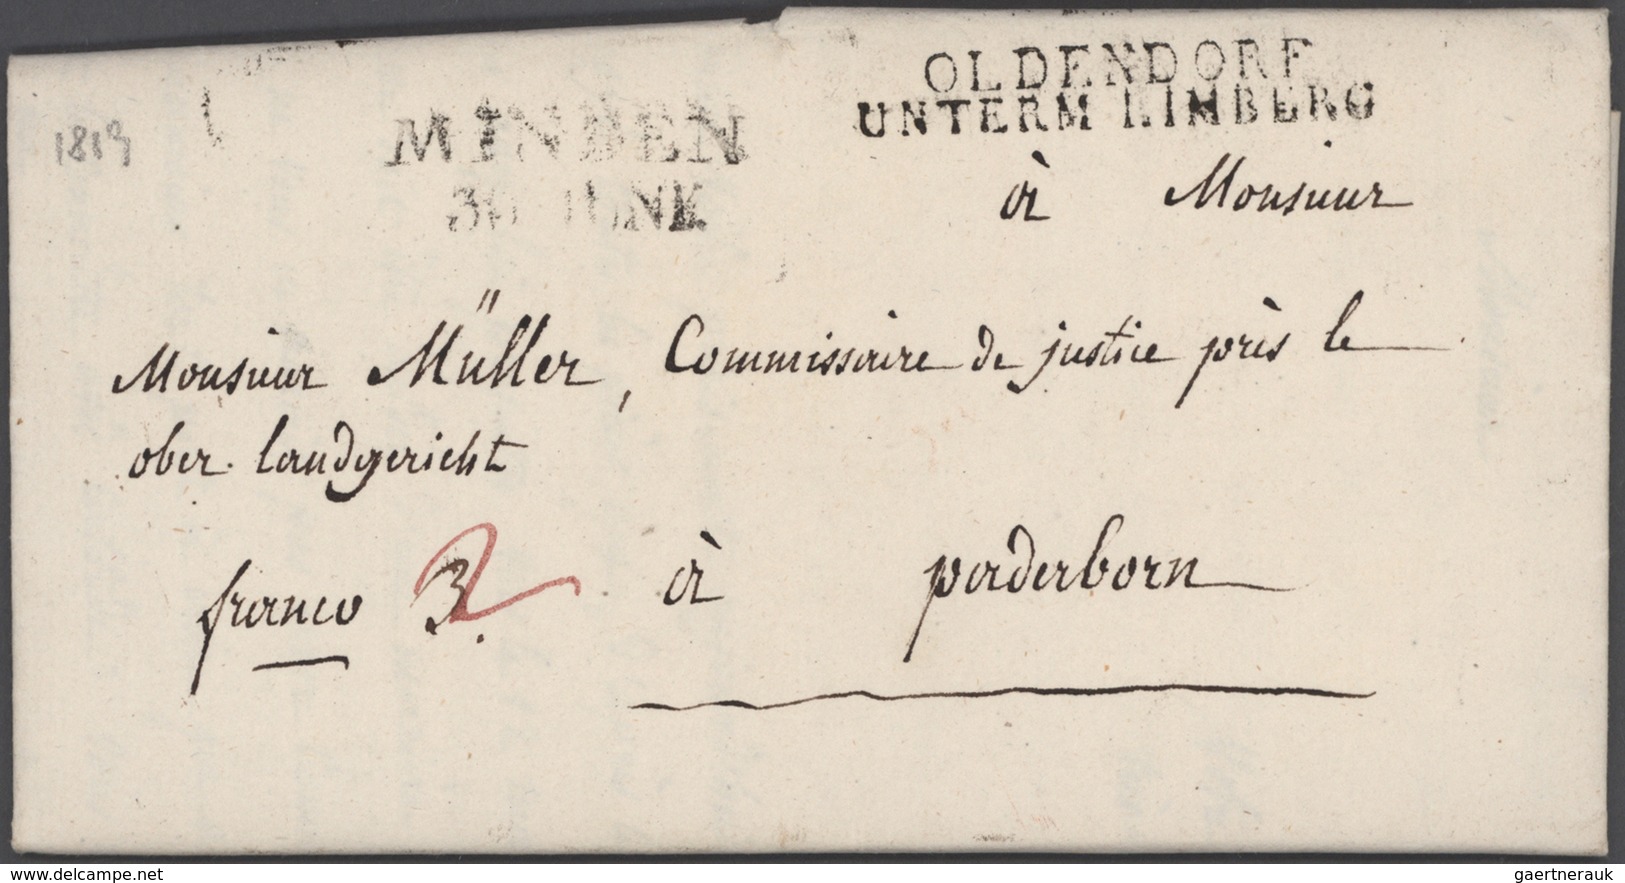 OLDENDORF
UNTERM LIMBERG
MINDEN
30 JUNY.
1819
à Monsieur
Monsieur Müller, Commissaire de justice près le
ober landgericht
franco 3. 2
à paderborn
delcampe.net
gaertnerauk